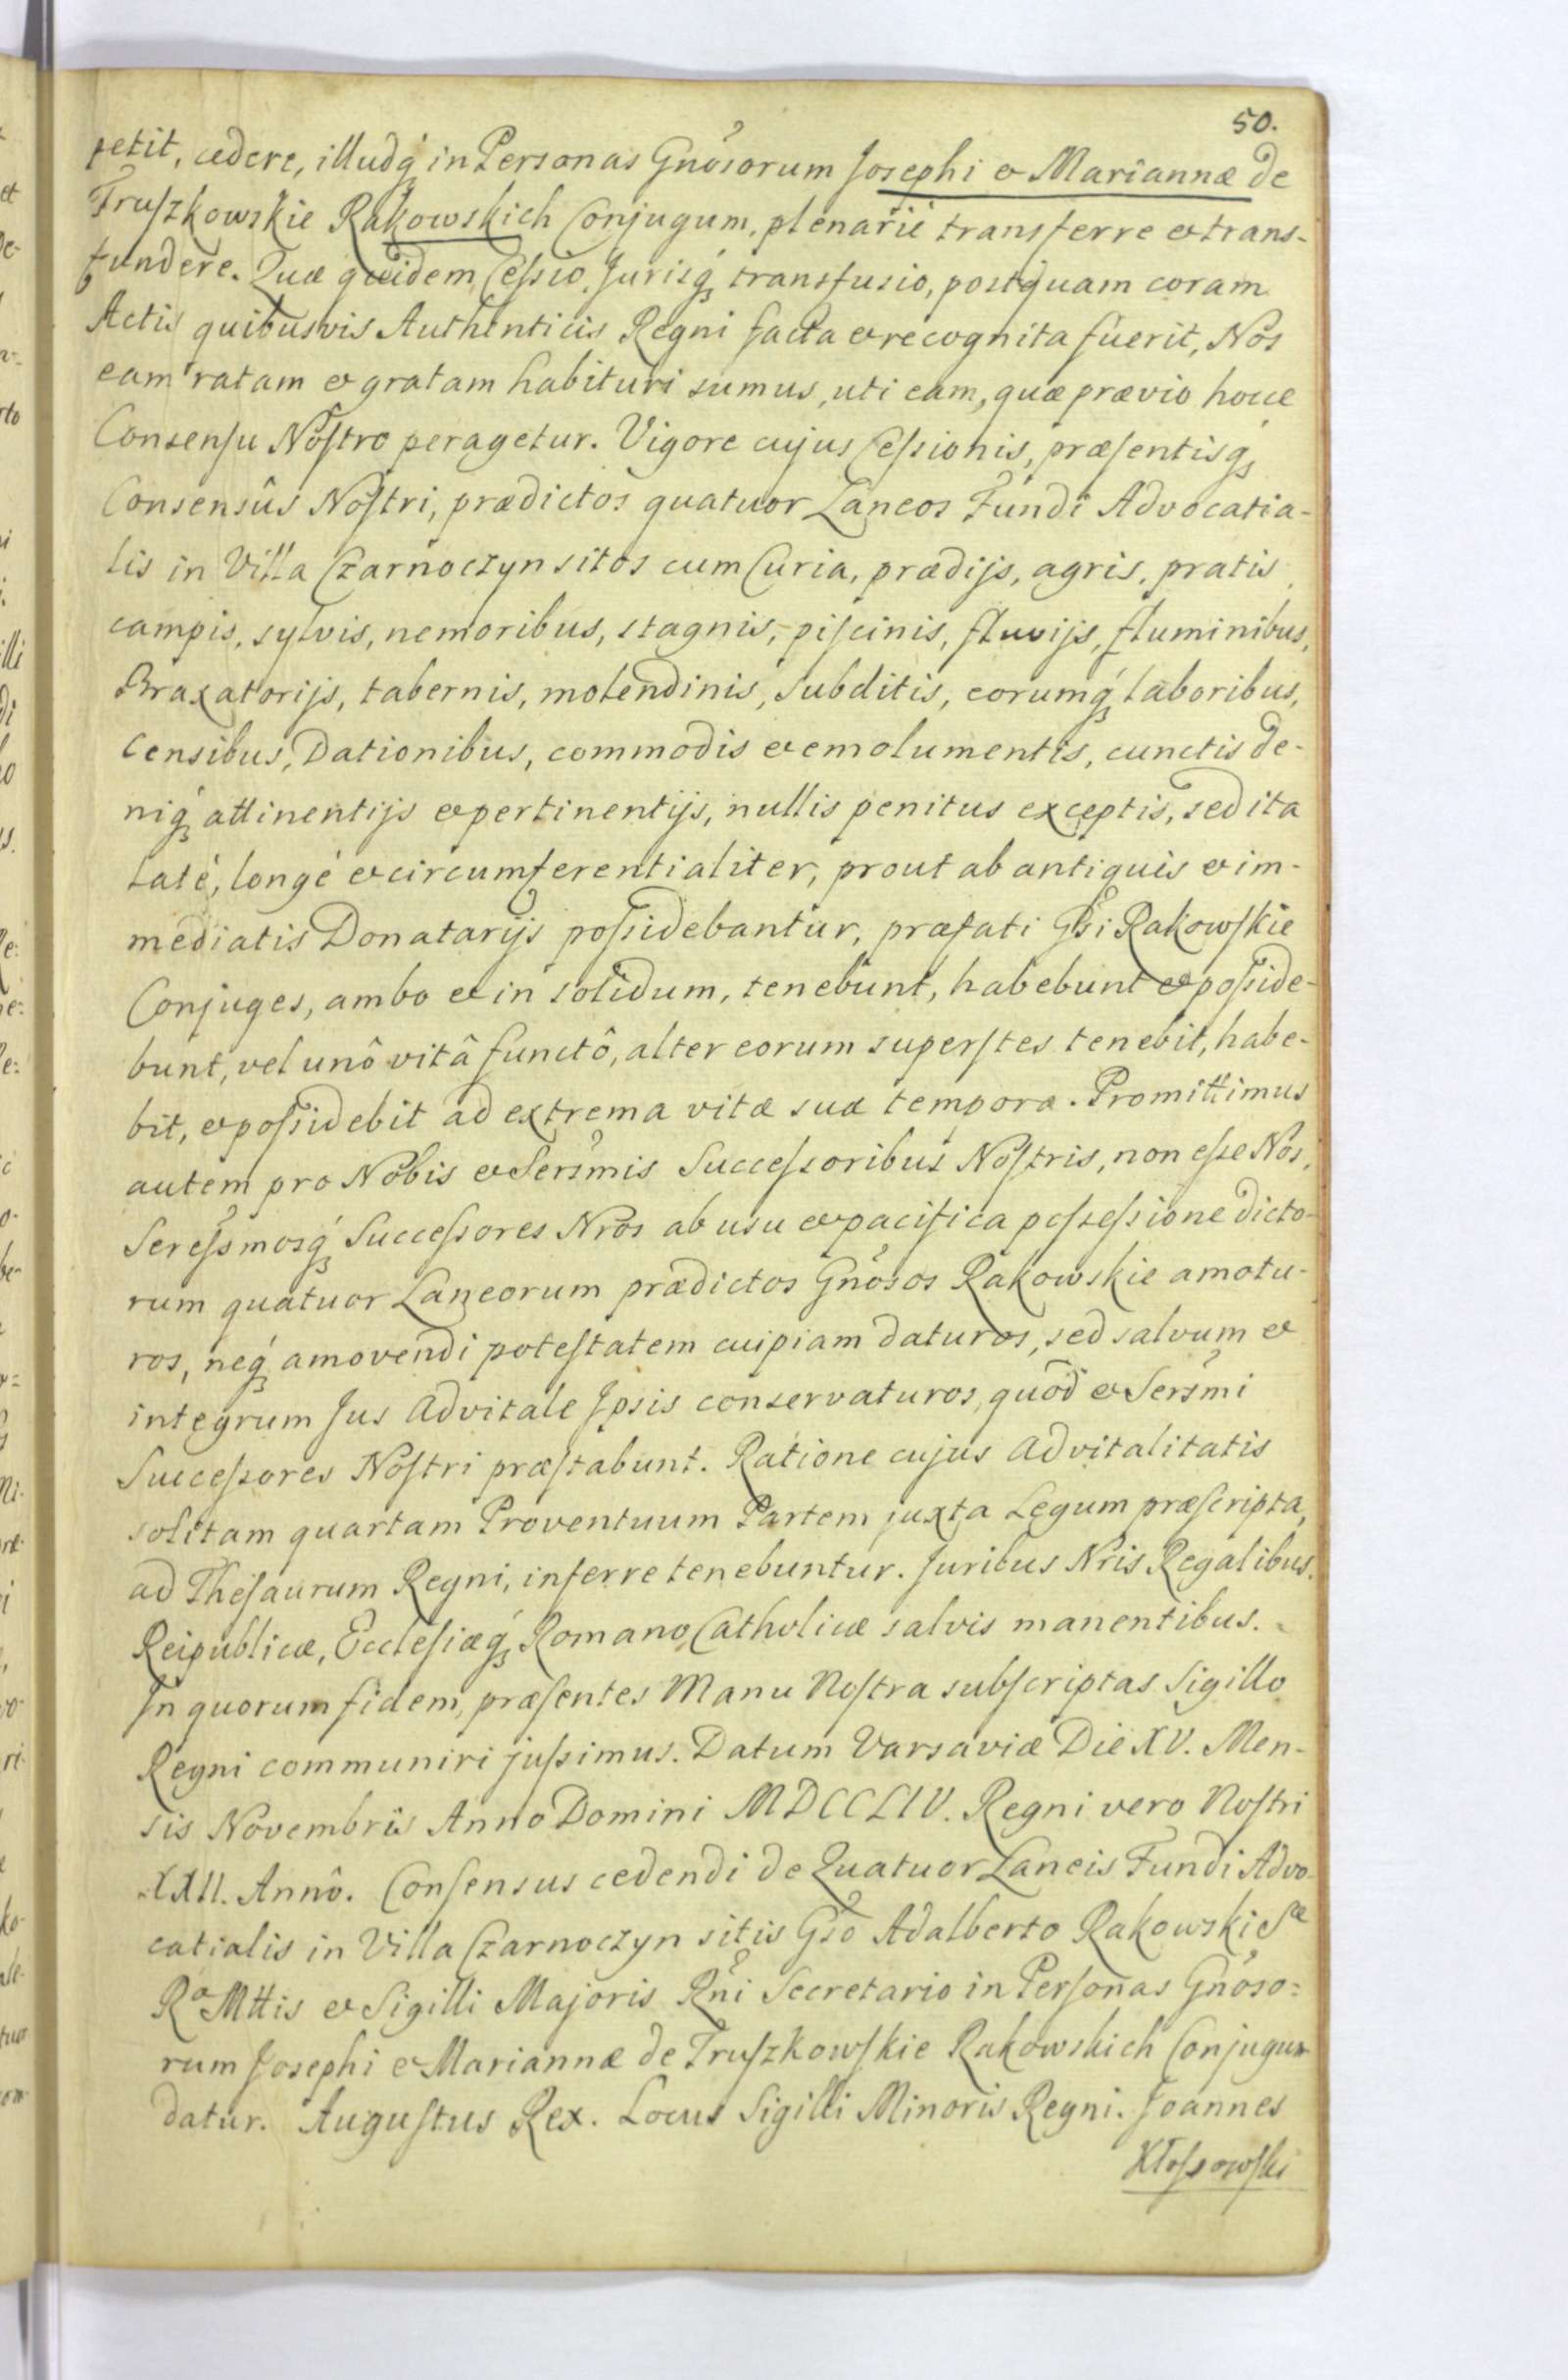 50.
petit, cedere, illudq́ in Personas Gnosorum Josephi & Mariannæ de
Truſzkowskie Rakowskich Conjugum, plenarié transferre & trans-
fundere. Quæ quidem Ceſsio, Jurisq́ transfusio, postquam coram
Actis quibusvis Authenticis Regni facta & recognita fuerit, Nos
eam ratam & gratam habituri sumus, uti eam, quæ prævio hocce
Consenſu Noſtro peragetur. Vigore cujus Ceſsionis, præſentisq́
Consensûs Noſtri, prædictos quatuor Laneos Fundi Advocatia-
lis in Villa Czarnoczyn sitos cum Curia, prædijs, agris, pratis,
campis, sylvis, nemoribus, stagnis, piſcinis, fluvijs, fluminibus,
Braxatorijs, tabernis, molendinis, subditis, eorumq́ laboribus,
Censibus, Dationibus, commodis & emolumentis, cunctis de-
niq́ attinentijs & pertinentijs, nullis penitus exceptis, sed ita
laté, longé & circumferentialiter, prout ab antiquis & im-
mediatis Donatarijs poſsidebantur, præfati Gsi Rakowſkie
Conjuges, ambo & in solidum, tenebunt, habebunt & poſside-
bunt, vel unô vitâ functô, alter eorum superſtes tenebit, habe-
bit, & poſsidebit ad extrema vitæ suæ tempora. Promittimus
autem pro Nobis & Sersmis Succeſsoribus Noſtris, non eſse Nos,
Sereſsmosq́ Succeſsores Nros ab usu & pacifica poſseſsione dicto-
rum quatuor Laneorum prædictos Gnosos Rakowskie amotu-
ros, neq́ amovendi poteſtatem cuipiam daturos, sed salvum &
integrum Jus Advitale Ipsis conservaturos, quod & Sersmi
Succeſsores Noſtri præſtabunt. Ratione cujus Advitalitatis
solitam quartam Proventuum Partem juxta Legum præſcripta,
ad Theſaurum Regni, inferre tenebuntur. Juribus Nris Regalibus,
Reipublicæ, Eccleſiæq́ Romano Catholicæ salvis manentibus.
In quorum fidem, præſentes Manu Noſtra subſcriptas Sigillo
Regni communiri juſsimus. Datum Varsaviæ Die XV. Men-
sis Novembris Anno Domini MDCCLIV. Regni vero Noſtri
XXII. Annô. Conſensus cedendi de Quatuor Laneis Fundi Advo-
catialis in Villa Czarnoczyn sitis Gso Adalberto Rakowski Sæ
Ræ Mttis & Sigilli Majoris Rni Secretario in Perſonas Gnoso-
rum Josephi & Mariannæ de Truſzkowſkie Rakowskich Conjugum
datur. Auguſtus Rex. Locus Sigilli Minoris Regni. Joannes
Kłoſsowſki